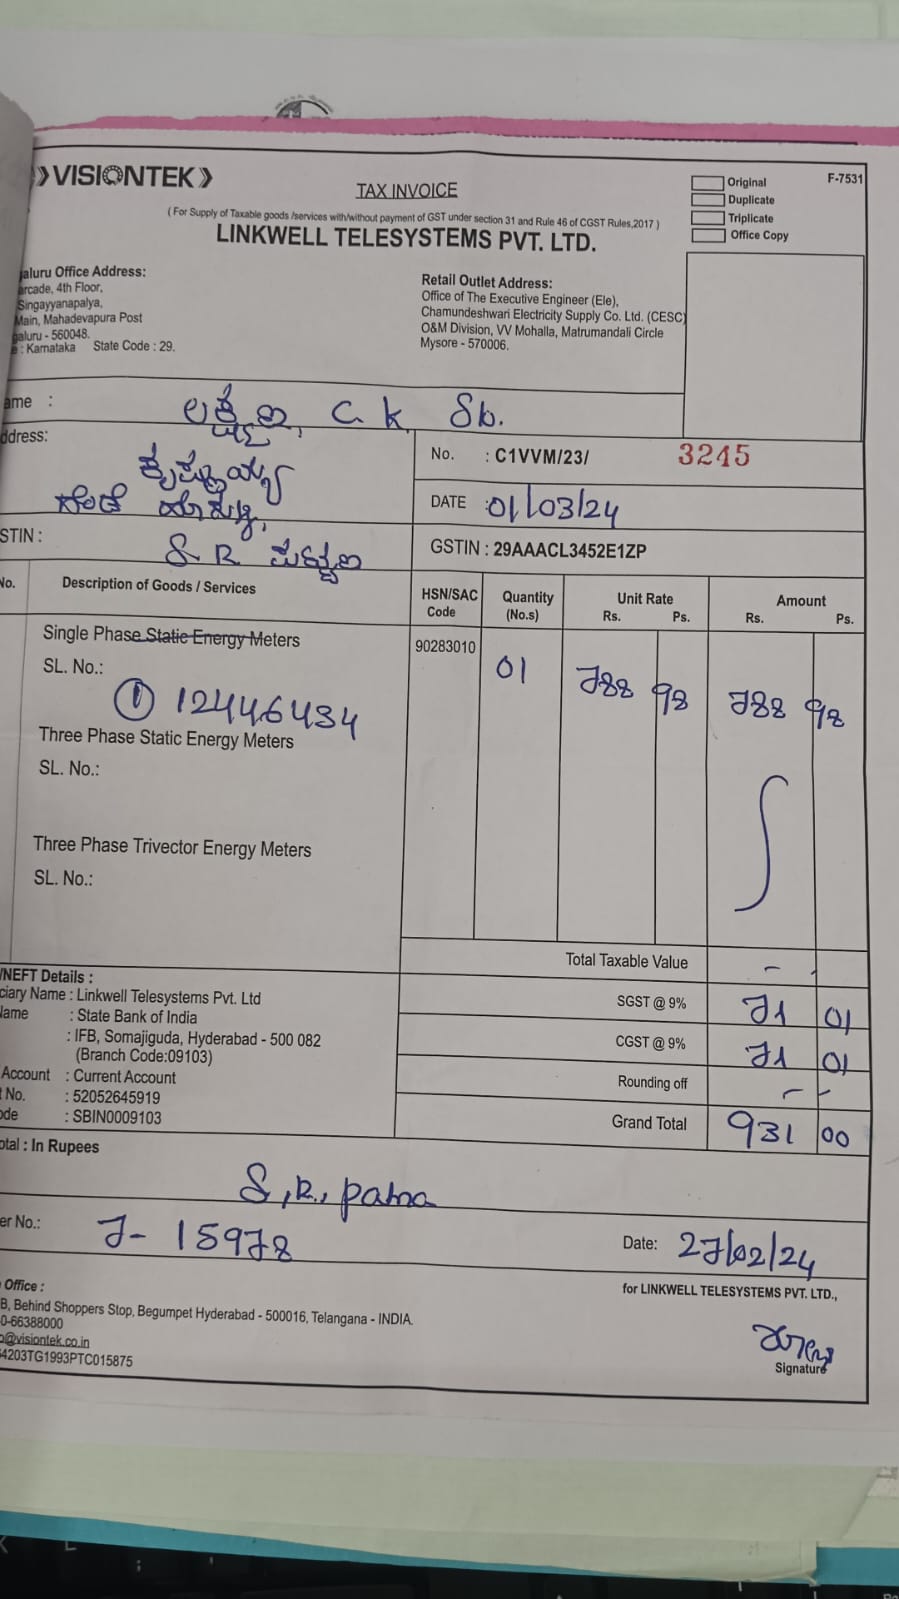 VISIONTEK
TAX INVOICE
Original
Duplicate
Triplicate
Office Copy
F-7531
( For Supply of Taxable goods /services with/without payment of GST under section 31 and Rule 46 of CGST Rules,2017 )
LINKWELL TELESYSTEMS PVT. LTD.
Office Address:
4th Floor,
Singayyanapalya,
Main, Mahadevapura Post
- 560048.
: Karnataka State Code : 29.
Retail Outlet Address:
Office of The Executive Engineer (Ele),
Chamundeshwari Electricity Supply Co. Ltd. (CESC)
O&M Division, VV Mohalla, Matrumandali Circle
Mysore - 570006.
: C. K.
No. : C1VVM/23/ 3245
DATE : 01/03/24
GSTIN : 29AAACL3452E1ZP
S. R.
No. Description of Goods / Services HSN/SAC Code Quantity (No.s) Unit Rate Rs. Ps. Amount Rs. Ps.
Single Phase Static Energy Meters 90283010 01 788 98 788 98
SL. No.:
① 12446434
Three Phase Static Energy Meters
SL. No.:
Three Phase Trivector Energy Meters
SL. No.:
Total Taxable Value -
/NEFT Details :
Name : Linkwell Telesystems Pvt. Ltd
: State Bank of India
: IFB, Somajiguda, Hyderabad - 500 082
(Branch Code:09103)
Account : Current Account
No. : 52052645919
: SBIN0009103
SGST @ 9% 71 01
CGST @ 9% 71 01
Rounding off - -
Grand Total 931 00
: In Rupees
No.: J- 15978
Date: 27/02/24
for LINKWELL TELESYSTEMS PVT. LTD.,
Office :
B, Behind Shoppers Stop, Begumpet Hyderabad - 500016, Telangana - INDIA.
0-66388000
@visiontek.co.in
4203TG1993PTC015875
Signature